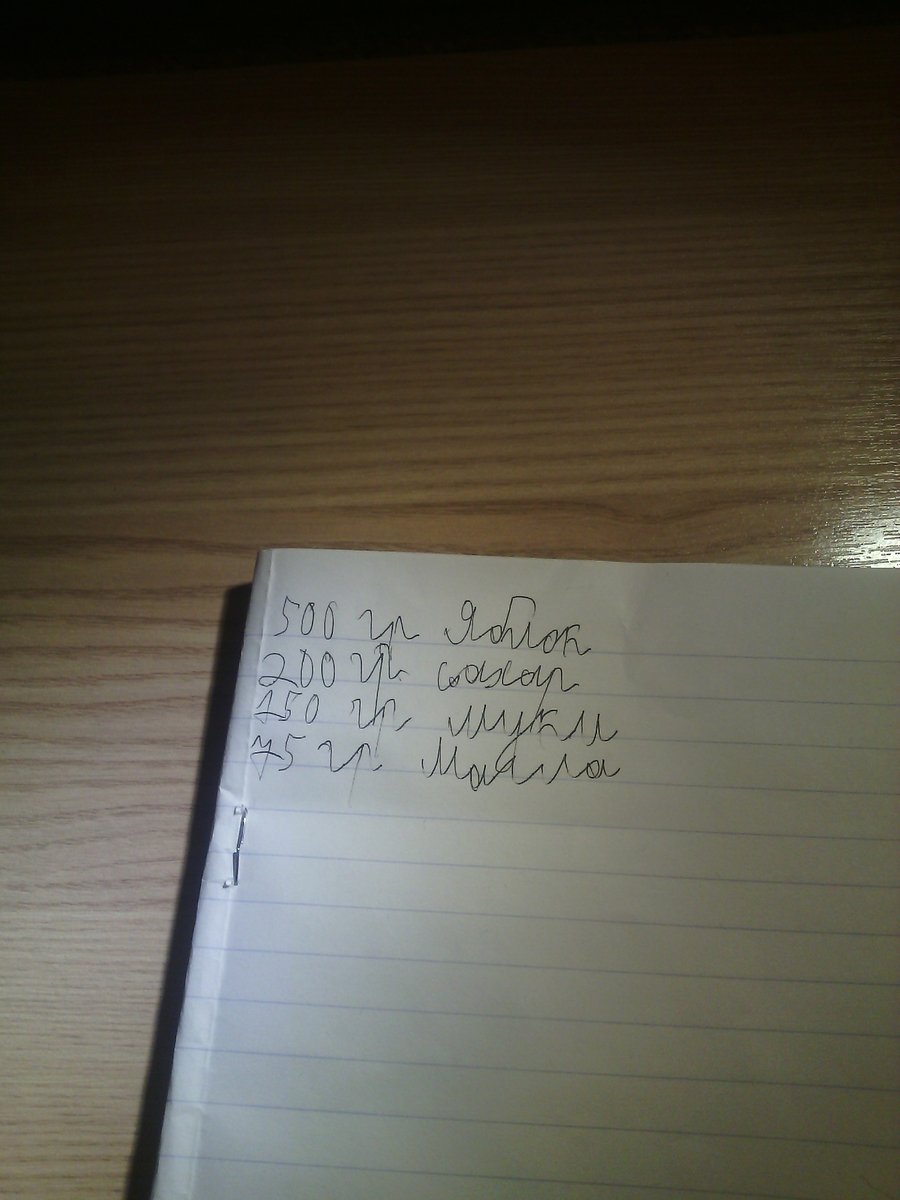 500 гр Яблок
200 гр. сахар
150 гр. муки
75 гр. Масла